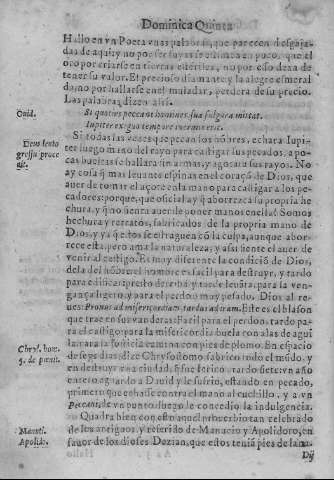 Dominica Quinta
Hallo en vn Poeta vnas palabras, que parecen desgaja-
das de aqui, y no por ser suyas se estimen en poco, que el
oro por criarse en tierras esteriles, no por esso dexa de
tener su valor. El precioso diamante y la alegre esmeral
da, no por hallarse en el muladar, perdera de su precio.
Las palabras dizen assi.
Ouid.
Si quoties peccant homines, sua fulgura mittat
Iupiter exiguo tempore inermis erit.
Si todas las vezes que pecan los hõbres, echara Iupi-
Deus lento
gressu proce
dit.
ter luego mano del rayo para castigar sus pecados, a po-
cas bueltas se hallara sin armas, y agotara sus rayos. No
ay cosa q̃ mas leuante espinas en el coraçõ de Dios, que
auer de tomar el açote en la mano para castigar a los pe-
cadores: porque, que oficial ay q̃ aborrezca su propria he
chura, y q̃ no sienta auer de poner manos en ella? Somos
hechura y retratos, fabricados de la propria mano de
Dios, y ya q̃ estos se estraguen cõ la culpa, aunque abor-
rece esta, pero ama la naturaleza, y assi siente el auer de
venir al castigo. Es muy diferente la condiciõ de Dios,
de la del hõbre: el hombre es facil para destruyr, y tardo
para edificar: presto derriba, y tarde leuãta: para la ven-
gança ligero, y para el perdon muy pesado. Dios al re-
ues: Pronus ad misericordiam, tardus ad iram. Este es el blason
que trae en sus vanderas: Facil para el perdon, tardo pa-
ra el castigo: para la misericordia buela con alas de agui
la, para la justicia camina con pies de plomo. En espacio
Chrys. hom.
5. de pœnit.
de seys dias, dize Chrysostomo, fabrico todo el mũdo, y
en destruyr vna ciudad, fue
tardo siete
vn año
entero aguardo a Dauid y le sufrio, estando en pecado,
primero que echasse contra el mano al cuchillo, y a vn
Peccaui, de vn punto, luego le concedio la indulgencia.
Quadra bien con esto aquel prouerbio tan celebrado
Manati.
Apolido.
de los antiguos, y referido de Manacio y Apolidoro, en
fauor de los dioses
que estos tenia pies de lana.
Dij